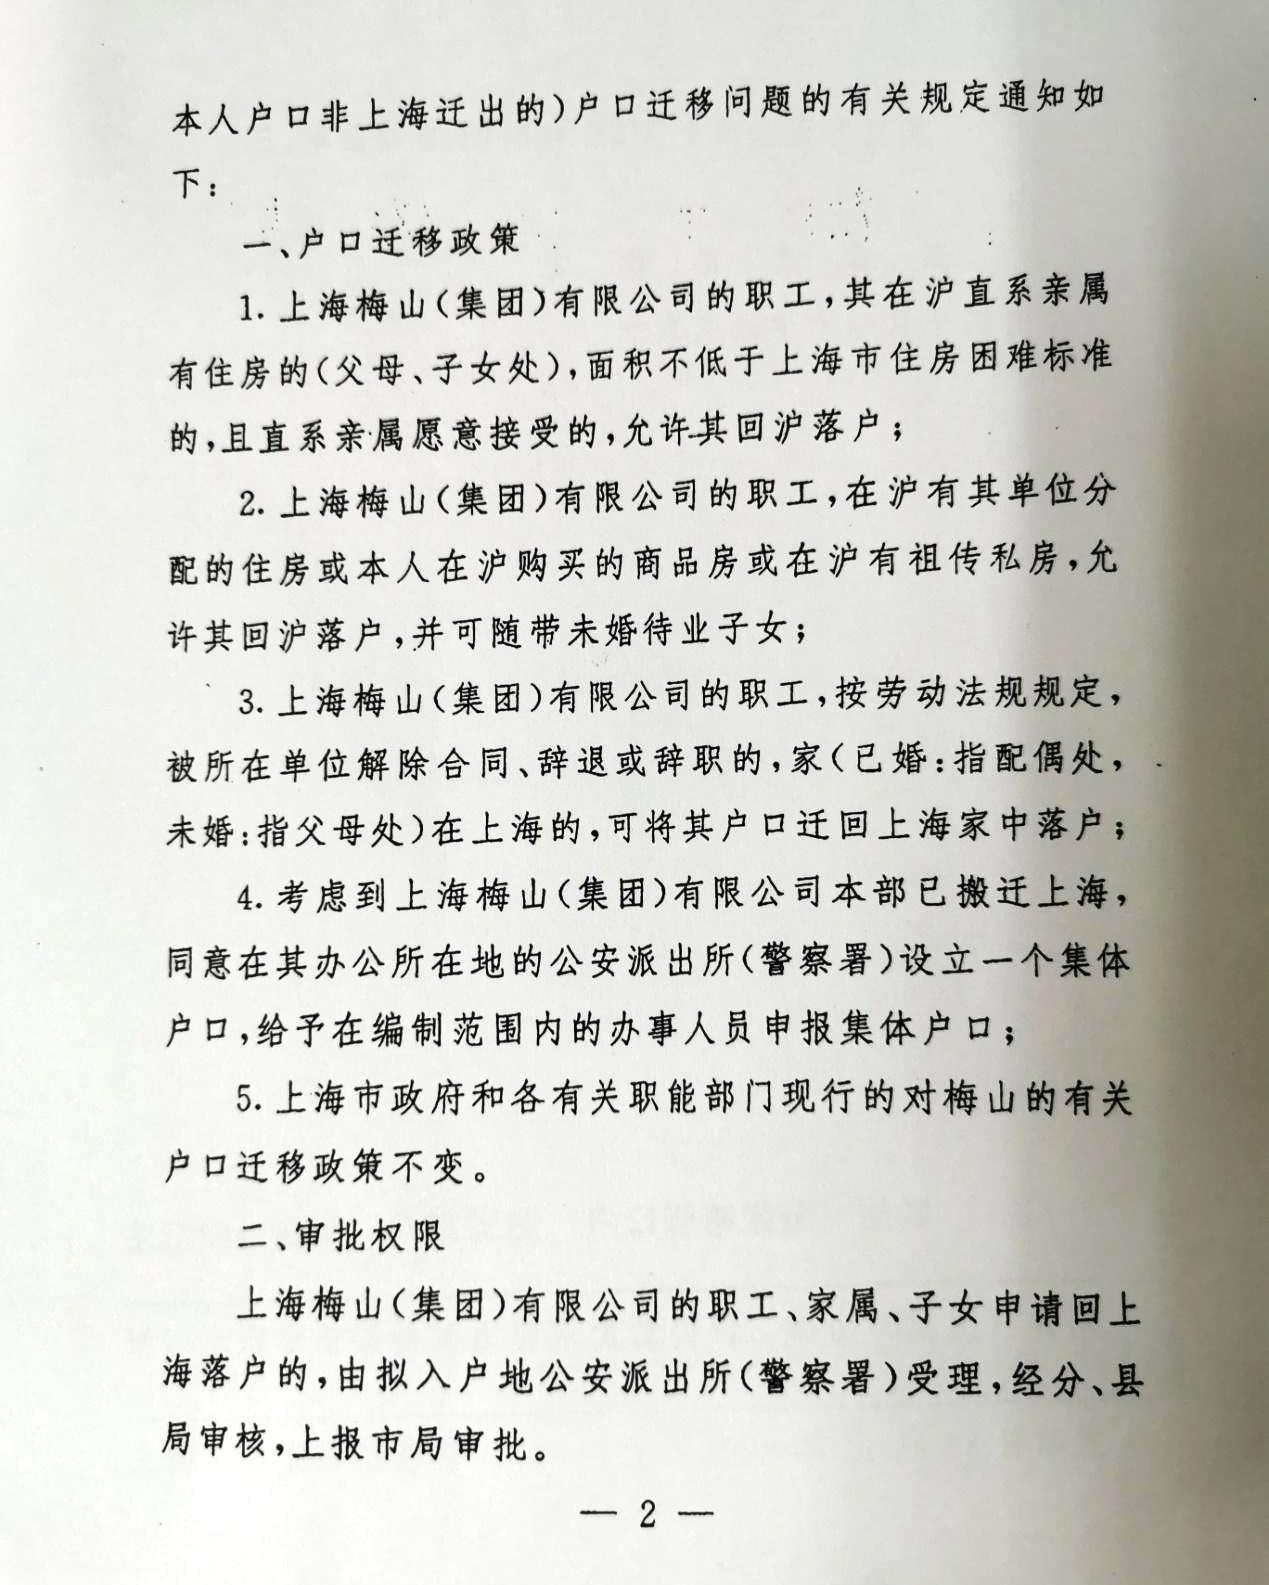 本人户口非上海迁出的)户口迁移问题的有关规定通知如
下:
一、户口迁移政策
1. 上海梅山(集团)有限公司的职工,其在沪直系亲属
有住房的(父母、子女处),面积不低于上海市住房困难标准
的,且直系亲属愿意接受的,允许其回沪落户;
2. 上海梅山(集团)有限公司的职工,在沪有其单位分
配的住房或本人在沪购买的商品房或在沪有祖传私房,允
许其回沪落户,并可随带未婚待业子女;
3. 上海梅山(集团)有限公司的职工,按劳动法规规定,
被所在单位解除合同、辞退或辞职的,家(已婚:指配偶处,
未婚:指父母处)在上海的,可将其户口迁回上海家中落户;
4. 考虑到上海梅山(集团)有限公司本部已搬迁上海,
同意在其办公所在地的公安派出所(警察署)设立一个集体
户口,给予在编制范围内的办事人员申报集体户口;
5. 上海市政府和各有关职能部门现行的对梅山的有关
户口迁移政策不变。
二、审批权限
上海梅山(集团)有限公司的职工、家属、子女申请回上
海落户的,由拟入户地公安派出所(警察署)受理,经分、县
局审核,上报市局审批。
— 2 —